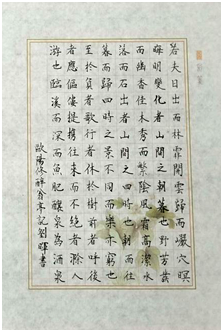 若夫日出而林霏開雲歸而巖穴暝
晦明變化者山間之朝暮也野芳發
而幽香佳木秀而繁陰風霜高潔水
落而石出者山間之四時也朝而往
暮而歸四時之景不同而樂亦窮也
至於負者歌行者休於樹前者呼後
者應傴僂提攜往來而不絕者滁人
游也臨溪而深而魚肥釀泉為酒泉
歐陽修醉翁亭記劉暉書